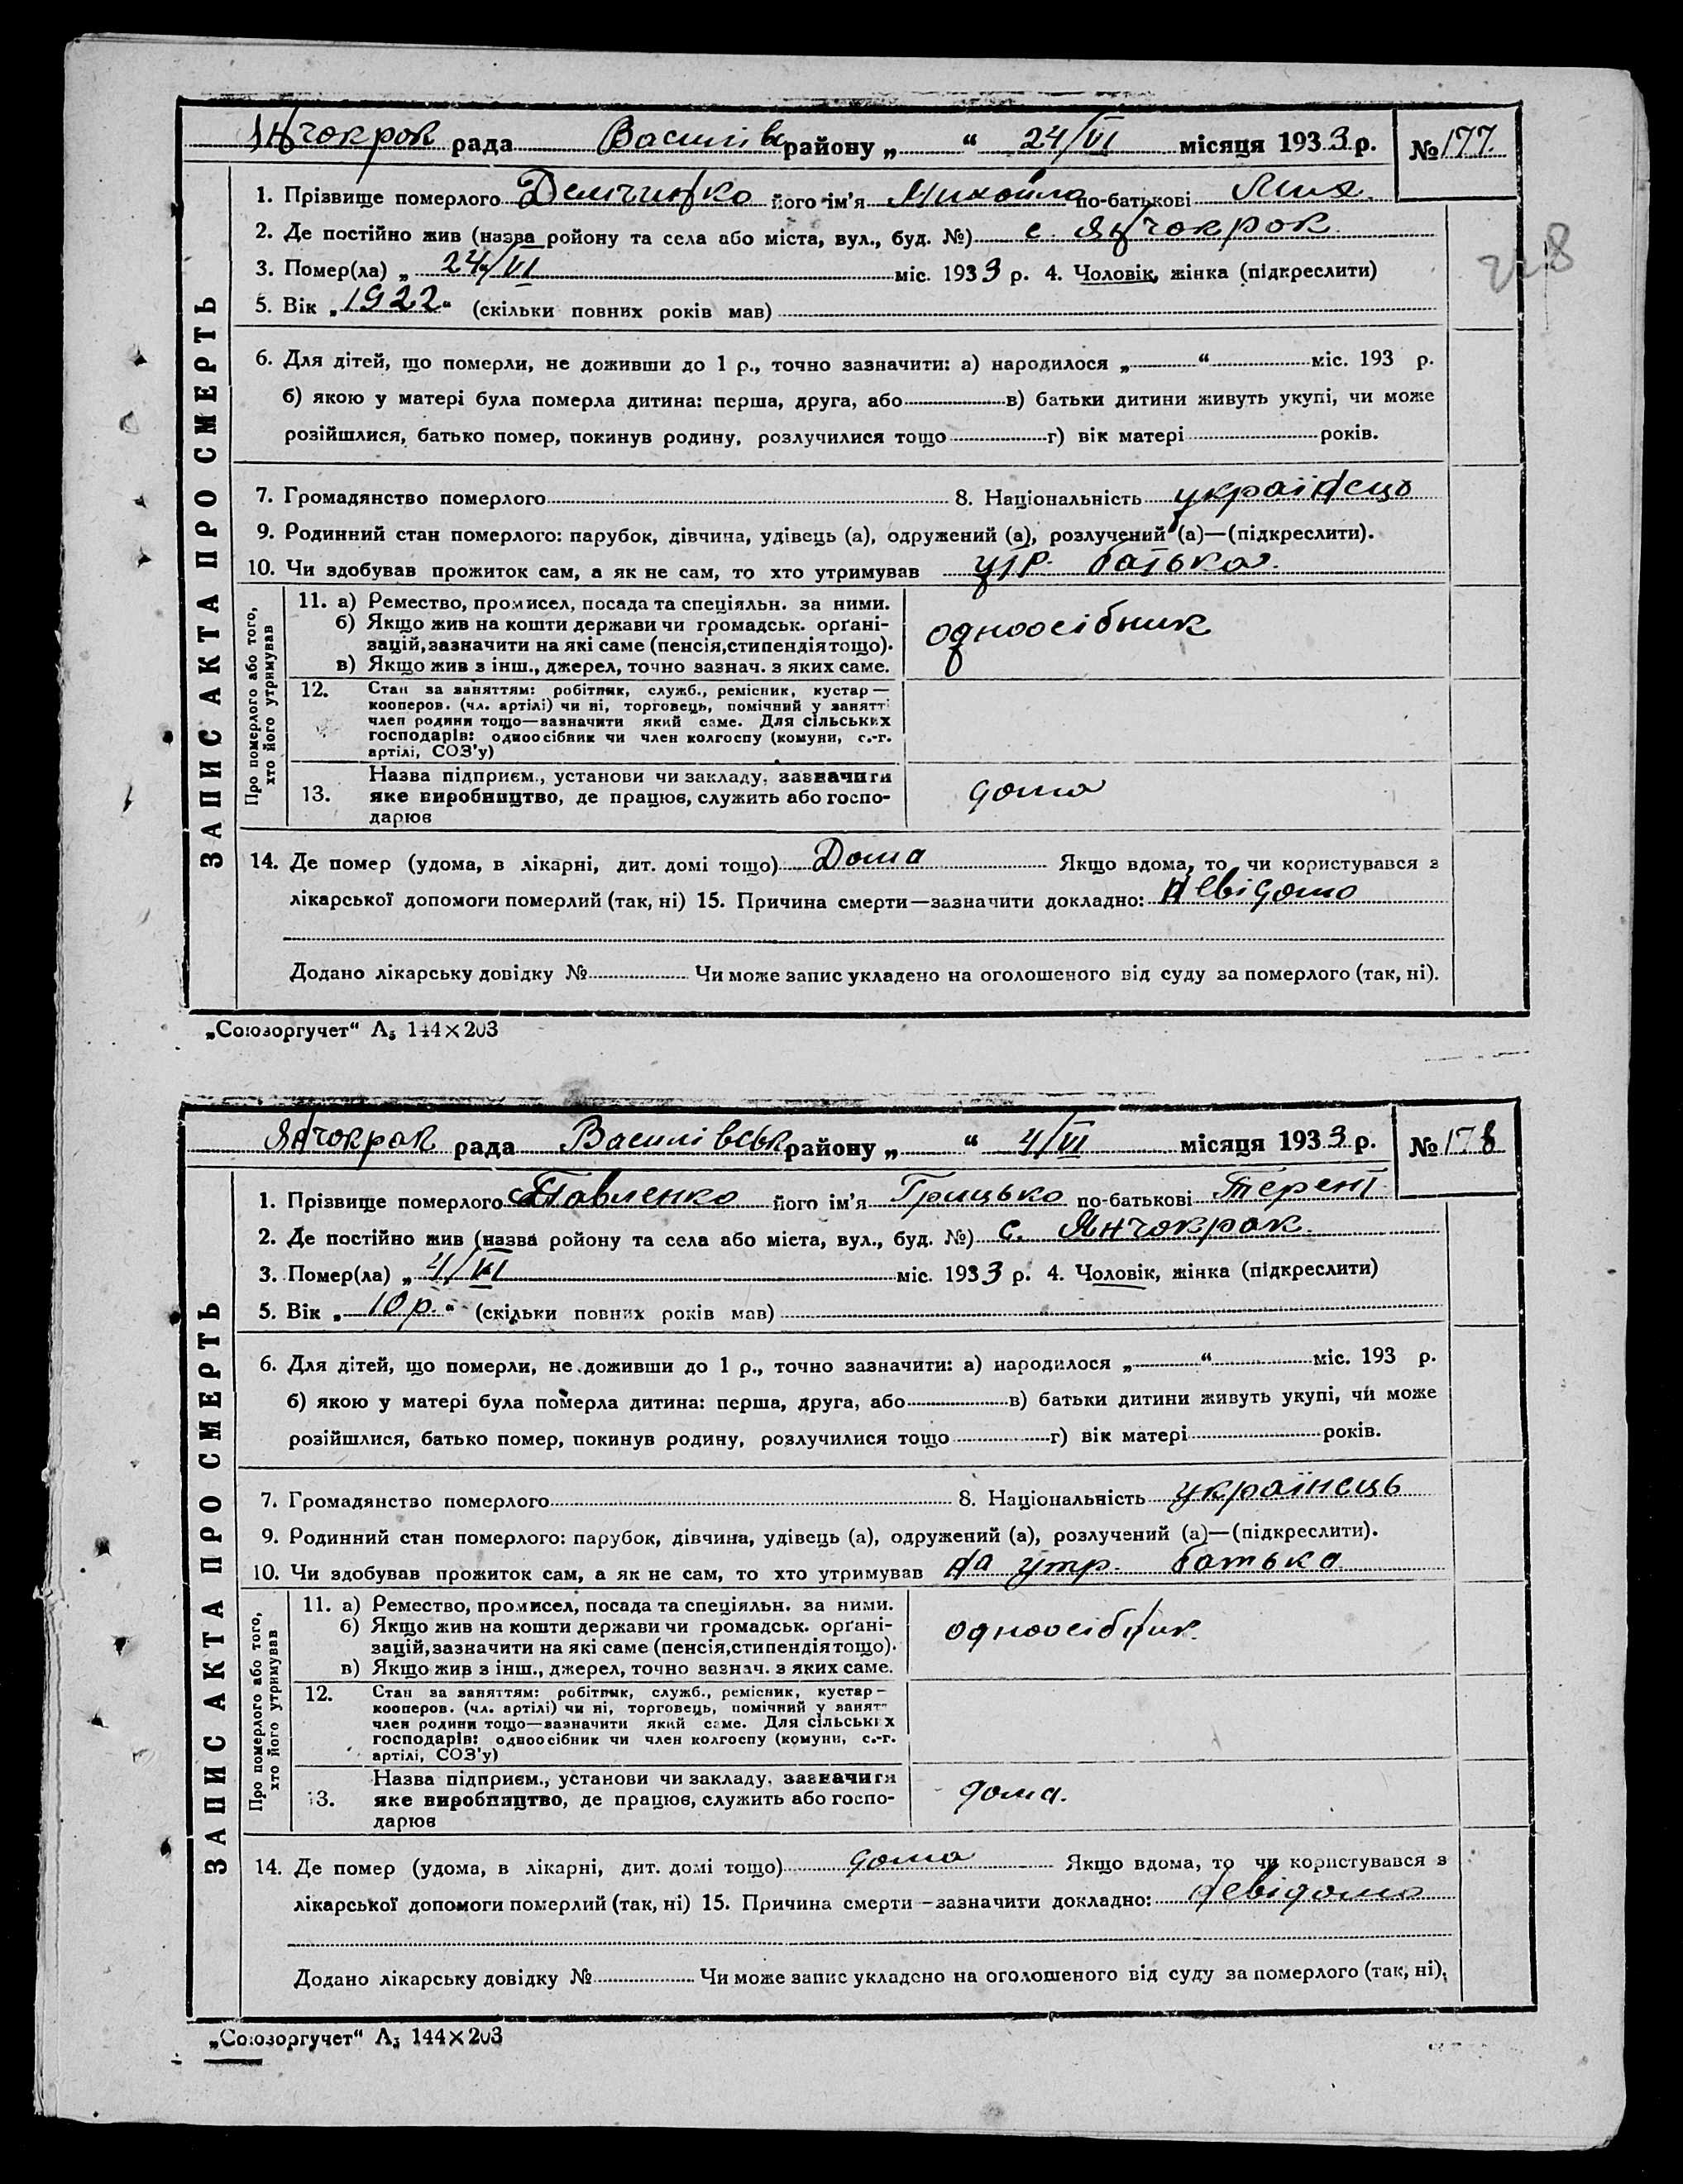 Янчокрак рада Василівс району „ “ 24/VI місяця 1933 р. № 177.
1. Прізвище померлого Демченко його ім'я Михайло по-батькові Мих.
2. Де постійно жив (назва ройону та села або міста, вул., буд. №) с. Янчокрок
3. Помер(ла) „ 24/VI міс. 1933 р. 4. Чоловік, жінка (підкреслити)
5. Вік „ 1922 “ (скільки повних років мав)
228
6. Для дітей, що померли, не доживши до 1 р., точно зазначити: а) народилося „ “ міс. 193 р.
б) якою у матері була померла дитина: перша, друга, або в) батьки дитини живуть укупі, чи може
розійшлися, батько помер, покинув родину, розлучилися тощо г) вік матері років.
7. Громадянство померлого 8. Національність українець
9. Родинний стан померлого: парубок, дівчина, удівець (а), одружений (а), розлучений (а)—(підкреслити).
10. Чи здобував прожиток сам, а як не сам, то хто утримував утр. батька.
ЗАПИС АКТА ПРО СМЕРТЬ
Про померлого або того,
хто його утримував
11. а) Ремество, промисел, посада та спеціяльн. за ними.
б) Якщо жив на кошти держави чи громадськ. орґані-
зацій, зазначити на які саме (пенсія, стипендія тощо).
в) Якщо жив з інш., джерел, точно зазнач. з яких саме.
одноосібник
12. Стан за заняттям: робітник, служб., ремісник, кустар—
кооперов. (чл. артілі) чи ні, торговець, помічний у занятт
член родини тощо—зазначити який саме. Для сільських
господарів: одноосібник чи член колгоспу (комуни, с.-г.
артілі, СОЗ'у)
13. Назва підприєм., установи чи закладу, зазначити
яке виробництво, де працює, служить або госпо-
дарює
дома
14. Де помер (удома, в лікарні, дит. домі тощо) Дома Якщо вдома, то чи користувався з
лікарської допомоги померлий (так, ні) 15. Причина смерти—зазначити докладно: Невідомо
Додано лікарську довідку № Чи може запис укладено на оголошеного від суду за померлого (так, ні).
„Союзоргучет“ А5 144×203
Янчокрак рада Василівськ району „ “ 4/VI місяця 1933 р. № 178
1. Прізвище померлого Павленко його ім'я Грицько по-батькові Терент
2. Де постійно жив (назва ройону та села або міста, вул., буд. №) с. Янчокрак.
3. Помер(ла) „ 4/VI міс. 1933 р. 4. Чоловік, жінка (підкреслити)
5. Вік „ 10 р. “ (скільки повних років мав)
6. Для дітей, що померли, не доживши до 1 р., точно зазначити: а) народилося „ “ міс. 193 р.
б) якою у матері була померла дитина: перша, друга, або в) батьки дитини живуть укупі, чи може
розійшлися, батько помер, покинув родину, розлучилися тощо г) вік матері років.
7. Громадянство померлого 8. Національність українець
9. Родинний стан померлого: парубок, дівчина, удівець (а), одружений (а), розлучений (а)—(підкреслити).
10. Чи здобував прожиток сам, а як не сам, то хто утримував На утр. батька.
ЗАПИС АКТА ПРО СМЕРТЬ
Про померлого або того,
хто його утримував
11. а) Ремество, промисел, посада та спеціяльн. за ними.
б) Якщо жив на кошти держави чи громадськ. орґані-
зацій, зазначити на які саме (пенсія, стипендія тощо).
в) Якщо жив з інш., джерел, точно зазнач. з яких саме.
одноосібник.
12. Стан за заняттям: робітник, служб., ремісник, кустар—
кооперов. (чл. артілі) чи ні, торговець, помічний у занят
член родини тощо—зазначити який саме. Для сільських
господарів: одноосібник чи член колгоспу (комуни, с.-г.
артілі, СОЗ'у)
13. Назва підприєм., установи чи закладу, зазначити
яке виробництво, де працює, служить або госпо-
дарює
дома.
14. Де помер (удома, в лікарні, дит. домі тощо) дома Якщо вдома, то чи користувався з
лікарської допомоги померлий (так, ні) 15. Причина смерти—зазначити докладно: Невідомо
Додано лікарську довідку № Чи може запис укладено на оголошеного від суду за померлого (так, ні).
„Союзоргучет“ А5 144×203